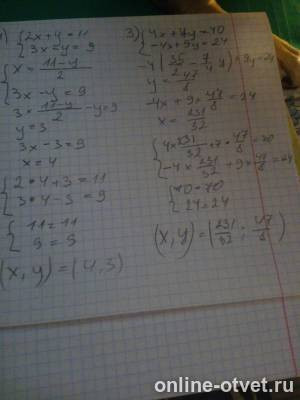 1) {2x+y=11
{3x-y=9
{x = (11-y)/2
3x-y=9
3* (11-y)/2 -y=9
y=3
3x-3=9
x=4
{2*4+3=11
{3*4-3=9
{11=11
9=9
(x,y)=(4,3)
3) {4x+7y=70
{-4x+9y=24
y= 47/8
-4x+9* 47/8 =24
x= 231/32
{4* 231/32 +7* 47/8 =70
-4* 231/32 +9* 47/8 =24
70=70
24=24
(x,y)=(231/32; 47/8)
online-otvet.ru